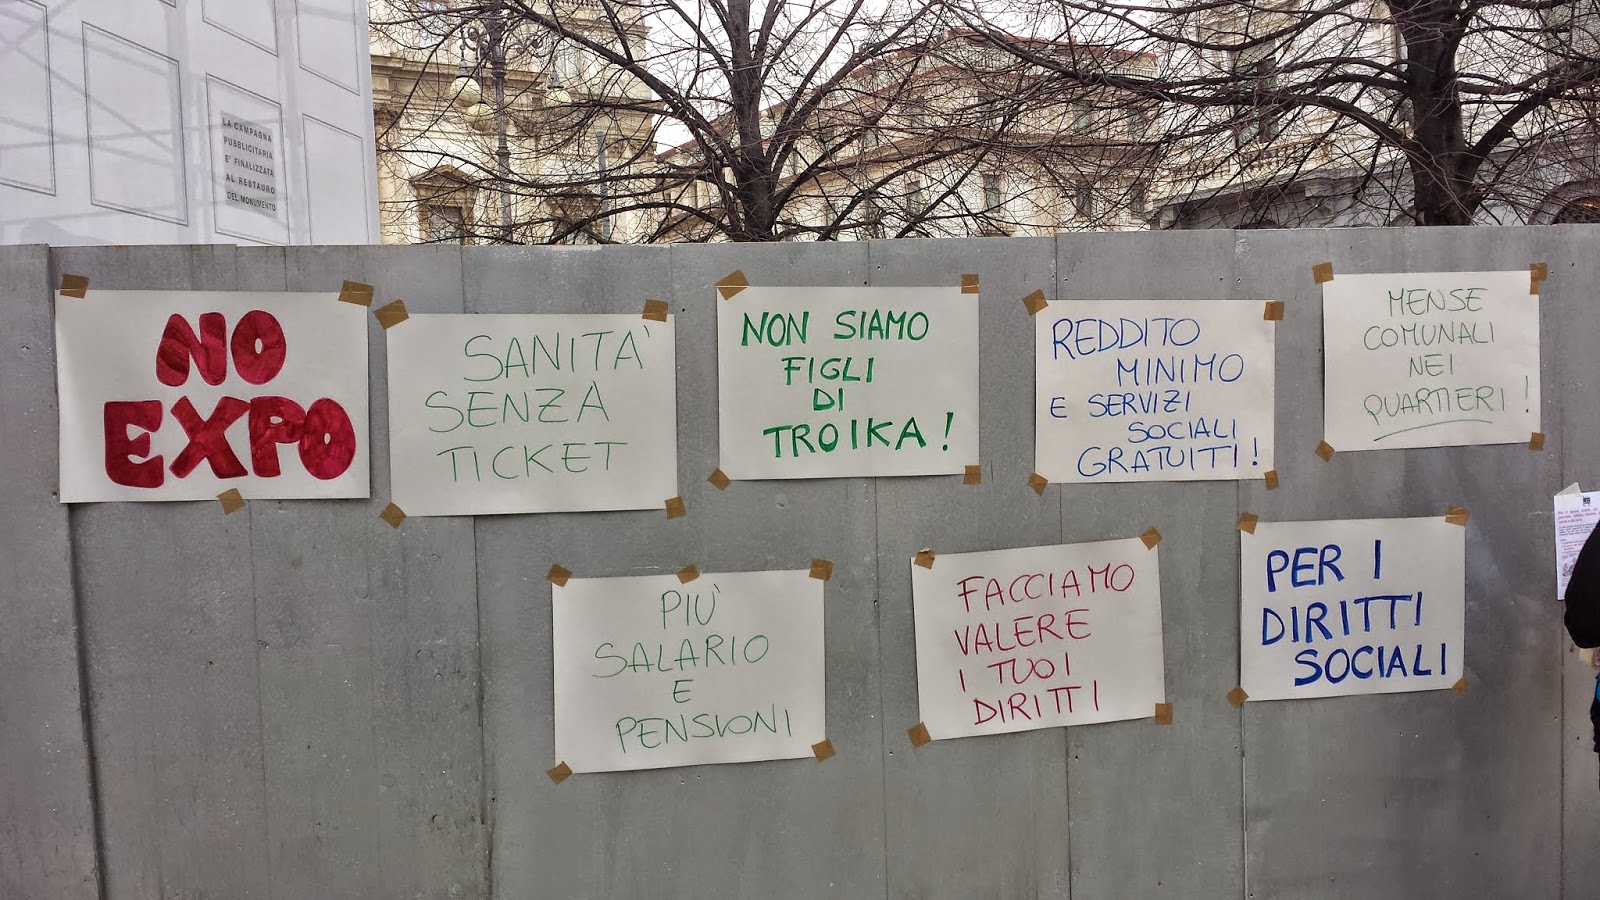 LA CAMPAGNA
PUBBLICITARIA
E' FINALIZZATA
AL RESTAURO
DEL MONUMENTO
NO
EXPO
SANITA'
SENZA
TICKET
NON SIAMO
FIGLI
DI
TROIKA!
REDDITO
MINIMO
E SERVIZI
SOCIALI
GRATUITI!
MENSE
COMUNALI
NEI
QUARTIERI!
PIU'
SALARIO
E
PENSIONI
FACCIAMO
VALERE
I TUOI
DIRITTI
PER I
DIRITTI
SOCIALI